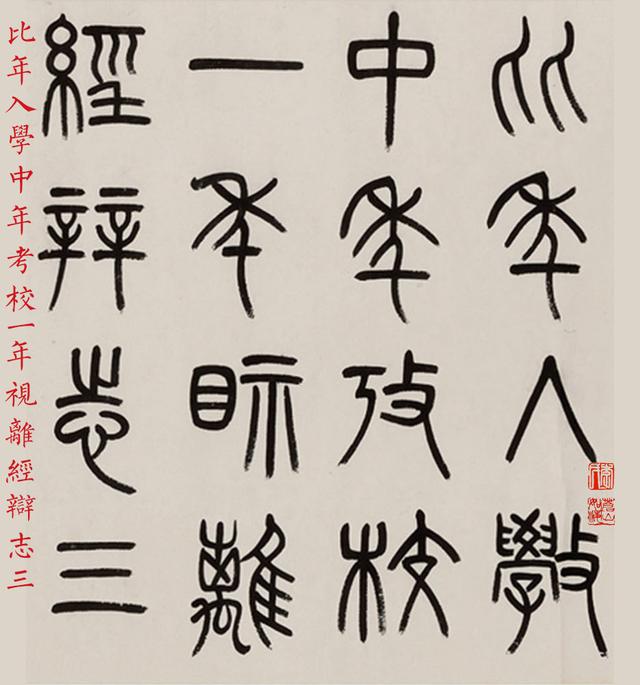 比年入斆
中年攷校
一年眎離
經辡志三
比年入學中年考校一年視離經辯志三